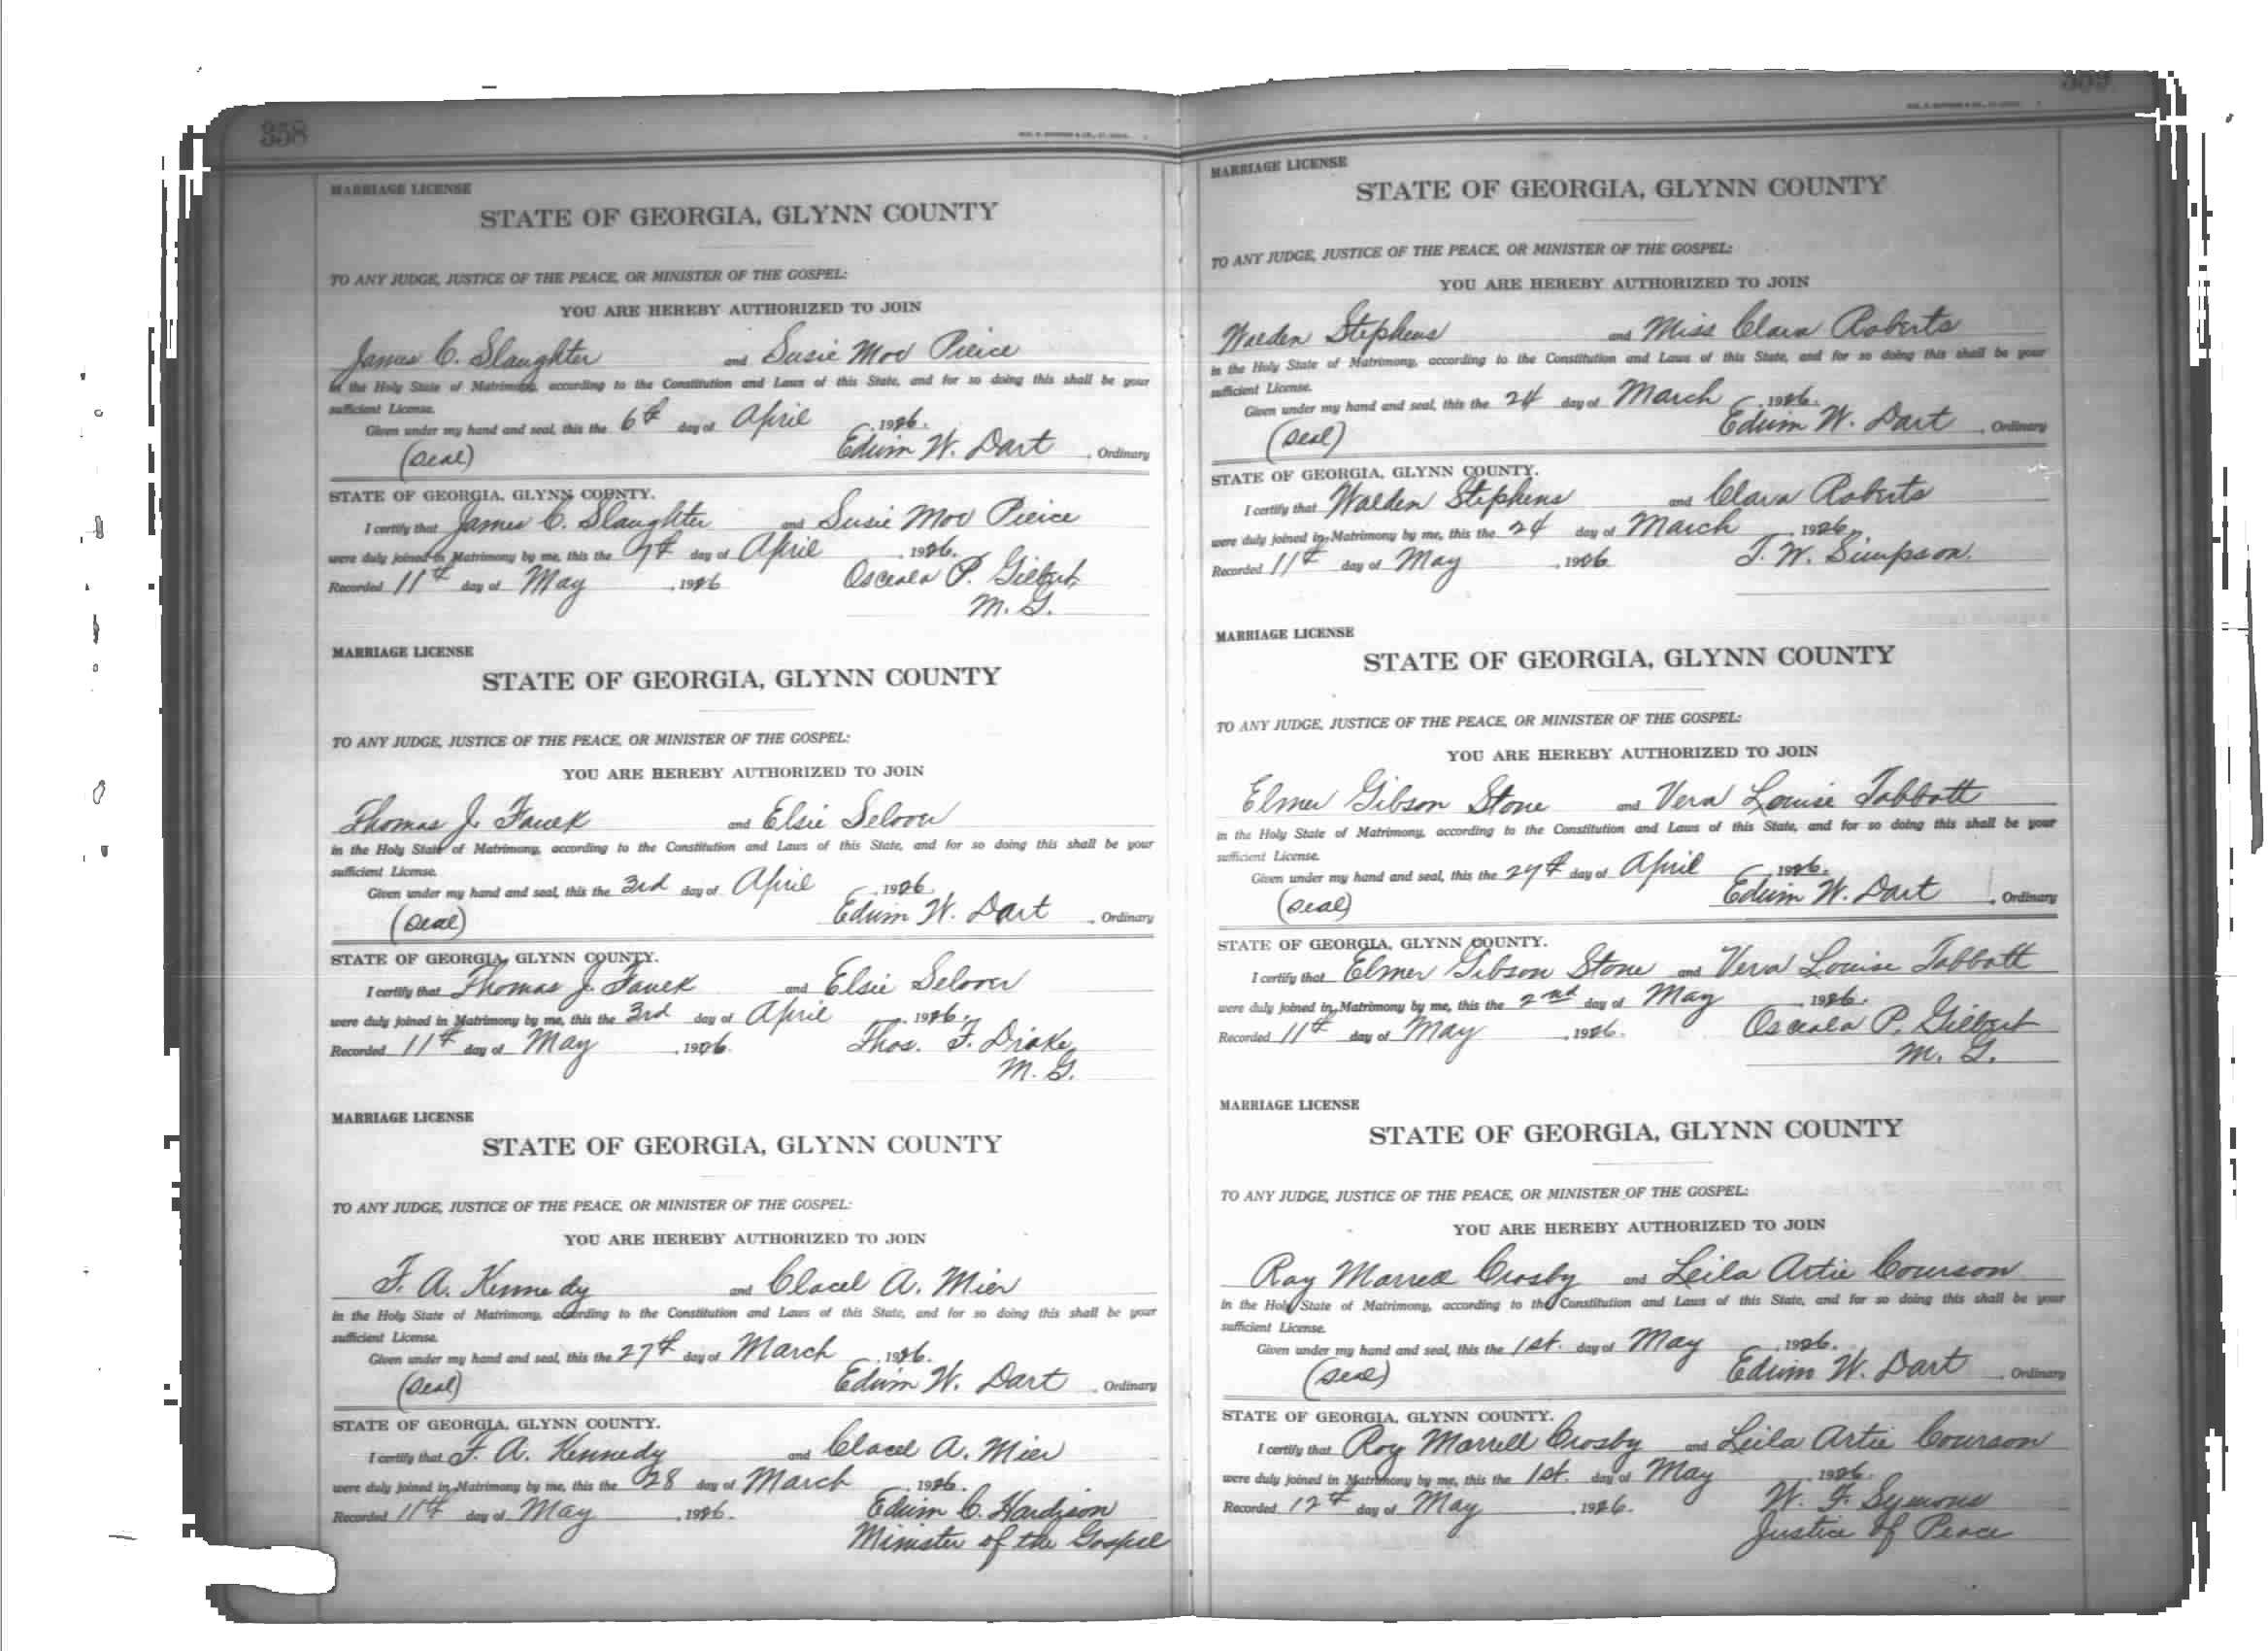 358
MARRIAGE LICENSE
STATE OF GEORGIA, GLYNN COUNTY
TO ANY JUDGE, JUSTICE OF THE PEACE, OR MINISTER OF THE GOSPEL:
YOU ARE HEREBY AUTHORIZED TO JOIN
James C. Slaughter and Susie Mov Pierce
in the Holy State of Matrimony, according to the Constitution and Laws of this State, and for so doing this shall be your
sufficient License.
Given under my hand and seal, this the 6th day of April, 1926.
(Seal) Edwin W. Dart, Ordinary
STATE OF GEORGIA, GLYNN COUNTY.
I certify that James C. Slaughter and Susie Mov Pierce
were duly joined in Matrimony by me, this the 7th day of April, 1926.
Recorded 11th day of May, 1926 Osceola P. Gilbert
M. G.
MARRIAGE LICENSE
STATE OF GEORGIA, GLYNN COUNTY
TO ANY JUDGE, JUSTICE OF THE PEACE, OR MINISTER OF THE GOSPEL:
YOU ARE HEREBY AUTHORIZED TO JOIN
Thomas J. Fauek and Elsie Selover
in the Holy State of Matrimony, according to the Constitution and Laws of this State, and for so doing this shall be your
sufficient License.
Given under my hand and seal, this the 3rd day of April, 1926.
(Seal) Edwin W. Dart, Ordinary
STATE OF GEORGIA, GLYNN COUNTY.
I certify that Thomas J. Fauek and Elsie Selover
were duly joined in Matrimony by me, this the 3rd day of April, 1926.
Recorded 11th day of May, 1926. Thos. F. Drake
M. G.
MARRIAGE LICENSE
STATE OF GEORGIA, GLYNN COUNTY
TO ANY JUDGE, JUSTICE OF THE PEACE, OR MINISTER OF THE GOSPEL:
YOU ARE HEREBY AUTHORIZED TO JOIN
F. A. Kennedy and Clacel A. Mier
in the Holy State of Matrimony, according to the Constitution and Laws of this State, and for so doing this shall be your
sufficient License.
Given under my hand and seal, this the 27th day of March, 1926.
(Seal) Edwin W. Dart, Ordinary
STATE OF GEORGIA, GLYNN COUNTY.
I certify that F. A. Kennedy and Clacel A. Mier
were duly joined in Matrimony by me, this the 28 day of March, 1926.
Recorded 11th day of May, 1926. Edwin C. Hardison
Minister of the Gospel
359
MARRIAGE LICENSE
STATE OF GEORGIA, GLYNN COUNTY
TO ANY JUDGE, JUSTICE OF THE PEACE, OR MINISTER OF THE GOSPEL:
YOU ARE HEREBY AUTHORIZED TO JOIN
Walden Stephens and Miss Clara Roberts
in the Holy State of Matrimony, according to the Constitution and Laws of this State, and for so doing this shall be your
sufficient License.
Given under my hand and seal, this the 24 day of March, 1926.
(Seal) Edwin W. Dart, Ordinary
STATE OF GEORGIA, GLYNN COUNTY.
I certify that Walden Stephens and Clara Roberts
were duly joined in Matrimony by me, this the 24 day of March, 1926.
Recorded 11th day of May, 1926 T. W. Simpson.
MARRIAGE LICENSE
STATE OF GEORGIA, GLYNN COUNTY
TO ANY JUDGE, JUSTICE OF THE PEACE, OR MINISTER OF THE GOSPEL:
YOU ARE HEREBY AUTHORIZED TO JOIN
Elmer Gibson Stone and Vera Louise Tabbott
in the Holy State of Matrimony, according to the Constitution and Laws of this State, and for so doing this shall be your
sufficient License.
Given under my hand and seal, this the 27th day of April, 1926.
(Seal) Edwin W. Dart, Ordinary
STATE OF GEORGIA, GLYNN COUNTY.
I certify that Elmer Gibson Stone and Vera Louise Tabbott
were duly joined in Matrimony by me, this the 2nd day of May, 1926.
Recorded 11th day of May, 1926. Osceola P. Gilbert
M. G.
MARRIAGE LICENSE
STATE OF GEORGIA, GLYNN COUNTY
TO ANY JUDGE, JUSTICE OF THE PEACE, OR MINISTER OF THE GOSPEL:
YOU ARE HEREBY AUTHORIZED TO JOIN
Roy Marrell Crosby and Leila Artie Courson
in the Holy State of Matrimony, according to the Constitution and Laws of this State, and for so doing this shall be your
sufficient License.
Given under my hand and seal, this the 1st. day of May, 1926.
(Seal) Edwin W. Dart, Ordinary
STATE OF GEORGIA, GLYNN COUNTY.
I certify that Roy Marrell Crosby and Leila Artie Courson
were duly joined in Matrimony by me, this the 1st. day of May, 1926.
Recorded 12th day of May, 1926. W. F. Symons
Justice of Peace